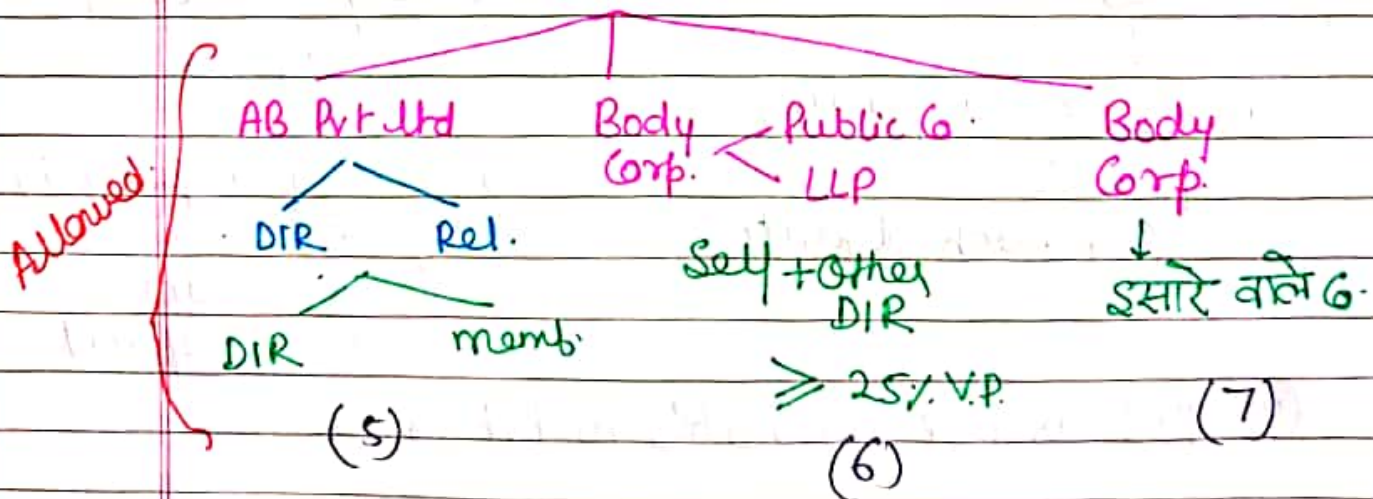 AB Pvt Ltd
DIR Rel.
DIR memb.
(5)
Body Corp.
Public Co.
LLP
Self + Other
DIR
≥ 25% V.P.
(6)
Body
Corp.
↓
इसारे वाले Co.
(7)
Allowed